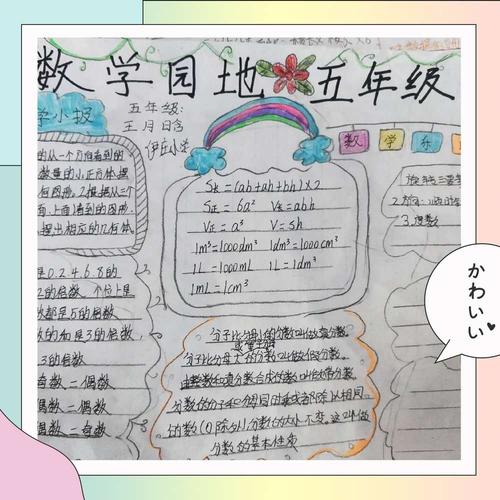 数学园地 五年级
学小报
五年级:
王月日含
伊庄小学
数 学 乐
的从一个方向看到的
数量的小正方体,摆
何图形。2.根据从三个
面、上面)看到的图形,
摆出相应的几何体
S长=(ab+ah+bh)×2
S正=6a² V长=abh
V正=a³ V=Sh
1m³=1000dm³ 1dm³=1000cm³
1L=1000mL 1L=1dm³
1mL=1cm³
旋转三要
2.方向:
3.度数
是0.2.4.6.8的
2的倍数,个位上是
数都是5的倍数
数的和是3的倍数,
3的倍数
奇数=偶数
偶数=偶数
偶数=奇数
分子比分母小的分数叫做真分数。
分子比分母大的分数叫做假分数。
由整数和真分数合成的数叫做带分数。
分数的分子和分母同时乘或者除以相同
的数(0除外)分数的大小不变。这叫做
分数的基本性质
かわいい♥